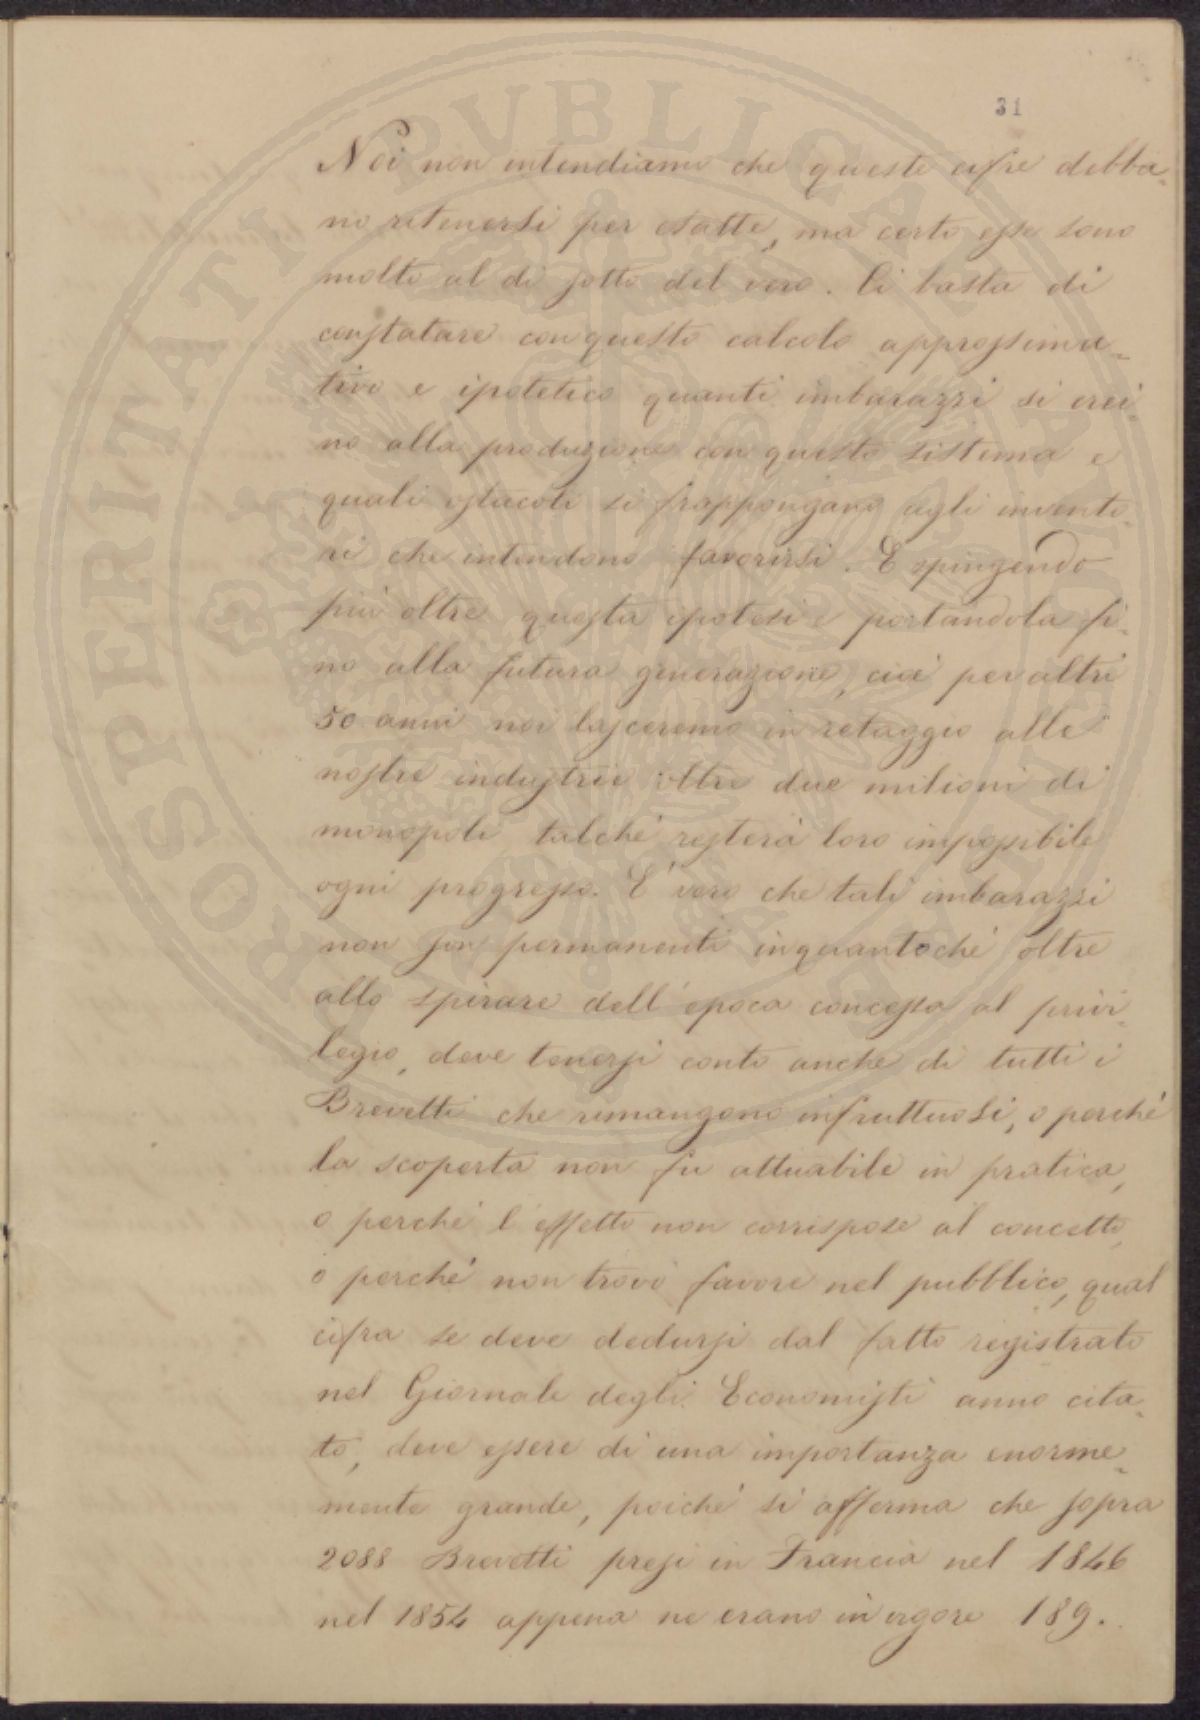 31
Noi non intendiamo che queste cifre debba-
no ritenersi per esatte, ma certo esse sono
molto al di sotto del vero. Ci basta di
constatare con questo calcolo approssima-
tivo e ipotetico quanti imbarazzi si crei-
no alla produzione con questo sistema e
quali ostacoli si frappongano agli invento-
ri che intendono favorirsi. E spingendo
più oltre questa ipotesi e portandola fi-
no alla futura generazione, cioè per altri
50 anni noi lasceremo in retaggio alle
nostre industrie oltre due milioni di
monopoli talchè resterà loro impossibile
ogni progresso. E' vero che tali imbarazzi
non son permanenti inquantochè oltre
allo spirare dell'epoca concessa al privi-
legio, deve tenersi conto anche di tutti i
Brevetti che rimangono infruttuosi, o perchè
la scoperta non fu attuabile in pratica,
o perchè l'effetto non corrispose al concetto,
o perchè non trovò favore nel pubblico, qual
cifra se deve dedursi dal fatto registrato
nel Giornale degli Economisti anno cita-
to, deve essere di una importanza enorme-
mente grande, poichè si afferma che sopra
2088 Brevetti presi in Francia nel 1846
nel 1854 appena ne erano in vigore 189.
PROSPERITATI PVBLICAE